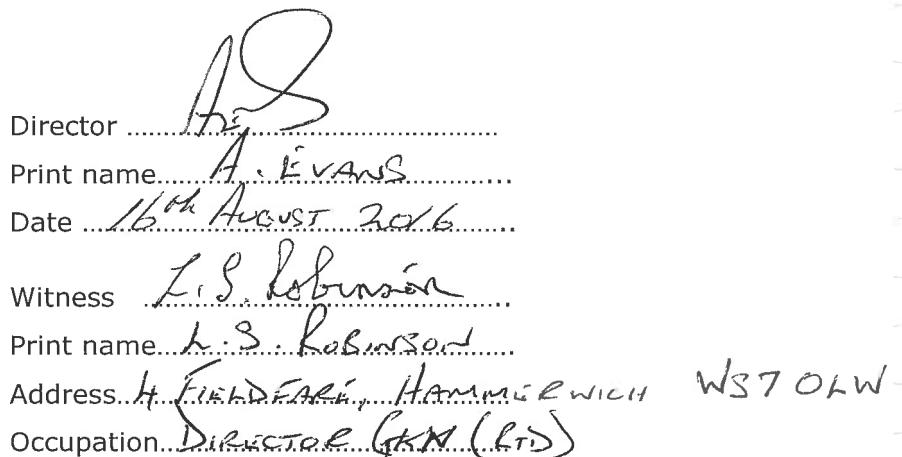 Director
Print name A. EVANS
Date 16th AUGUST 2016
Witness L.S. Robinson
Print name L.S. ROBINSON
Address 4 FIELDFARE, HAMMERWICH WS7 0LW
Occupation DIRECTOR GKN (RTD)